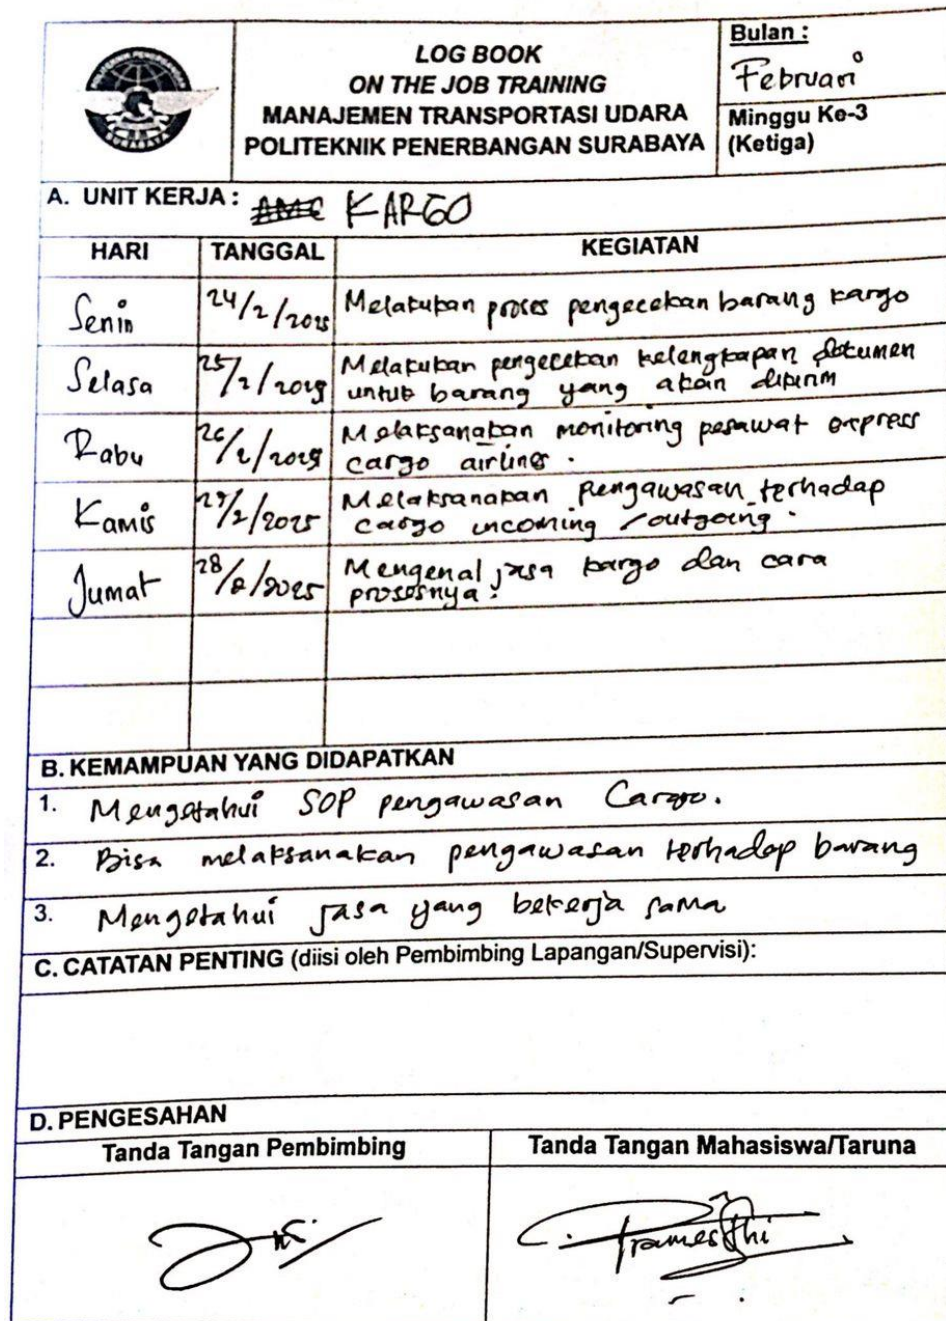 POLITEKNIK PENERBANGAN
SURABAYA
LOG BOOK
ON THE JOB TRAINING
MANAJEMEN TRANSPORTASI UDARA
POLITEKNIK PENERBANGAN SURABAYA
Bulan :
Februari
Minggu Ke-3
(Ketiga)
A. UNIT KERJA : AMC KARGO
HARI TANGGAL KEGIATAN
Senin 24/2/2025 Melakukan proses pengecekan barang kargo
Selasa 25/2/2025 Melakukan pengecekan kelengkapan dokumen
untuk barang yang akan dikirim
Rabu 26/2/2025 Melaksanakan monitoring pesawat express
cargo airlines.
Kamis 27/2/2025 Melaksanakan Pengawasan terhadap
cargo incoming / outgoing.
Jumat 28/2/2025 Mengenal jasa kargo dan cara
prosesnya.
B. KEMAMPUAN YANG DIDAPATKAN
1. Mengetahui SOP pengawasan Cargo.
2. Bisa melaksanakan pengawasan terhadap barang
3. Mengetahui jasa yang bekerja sama
C. CATATAN PENTING (diisi oleh Pembimbing Lapangan/Supervisi):
D. PENGESAHAN
Tanda Tangan Pembimbing Tanda Tangan Mahasiswa/Taruna
Pramesthi